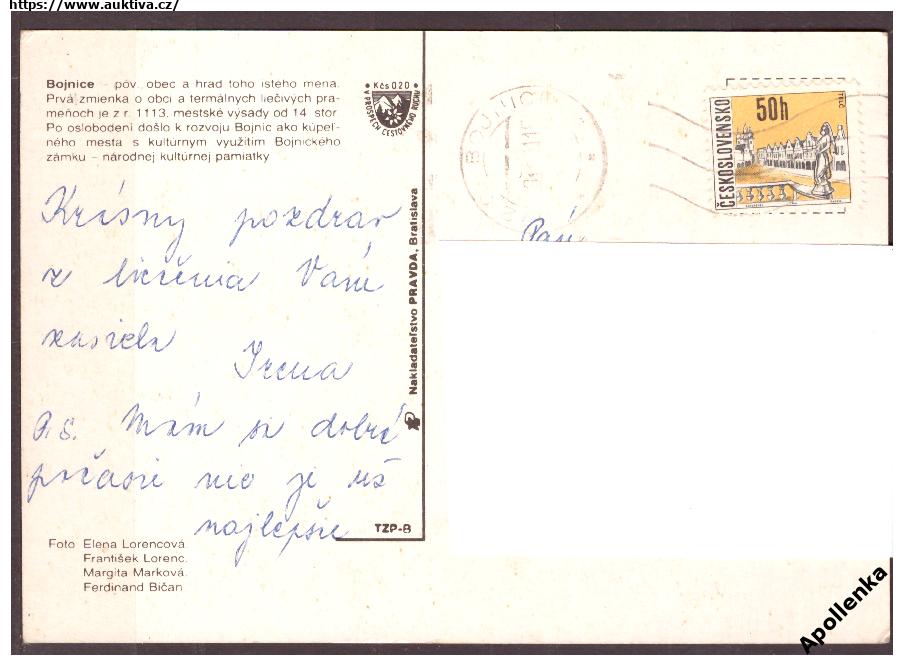 https://www.auktiva.cz/
Bojnice – pôv. obec a hrad toho istého mena.
Prvá zmienka o obci a termálnych liečivých pra-
meňoch je z r. 1113, mestské výsady od 14. stor.
Po oslobodení došlo k rozvoju Bojníc ako kúpeľ-
ného mesta s kultúrnym využitím Bojnického
zámku – národnej kultúrnej pamiatky
Kčs 0,20
PROSPECH CESTOVNÉHO RUCHU
Krásny pozdrav
z liečenia Vám
zasiela
Irena
P.S. Mám sa dobre
počasie nie je už
najlepšie
TZP-B
Foto Elena Lorencová
František Lorenc.
Margita Marková.
Ferdinand Bičan
Nakladateľstvo PRAVDA, Bratislava
BOJNIC
50h
ČESKOSLOVENSKO
TELČ
Apollenka